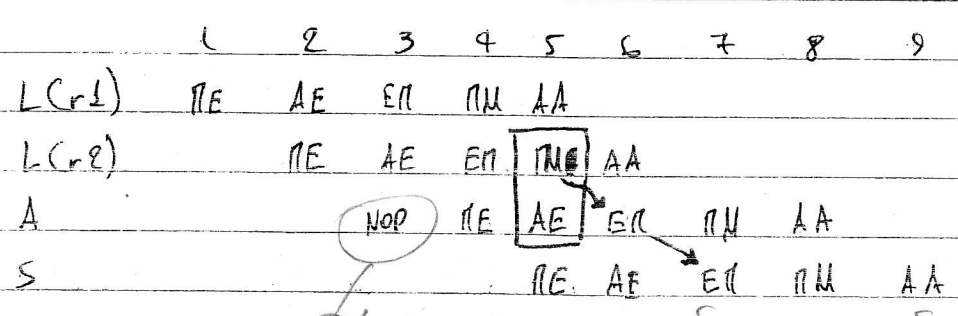 1 2 3 4 5 6 7 8 9
L(r1) ΠΕ ΑΕ ΕΠ ΠΜ ΑΑ
L(r2) ΠΕ ΑΕ ΕΠ ΠΜ ΑΑ
A NOP ΠΕ ΑΕ ΕΠ ΠΜ ΑΑ
S ΠΕ ΑΕ ΕΠ ΠΜ ΑΑ